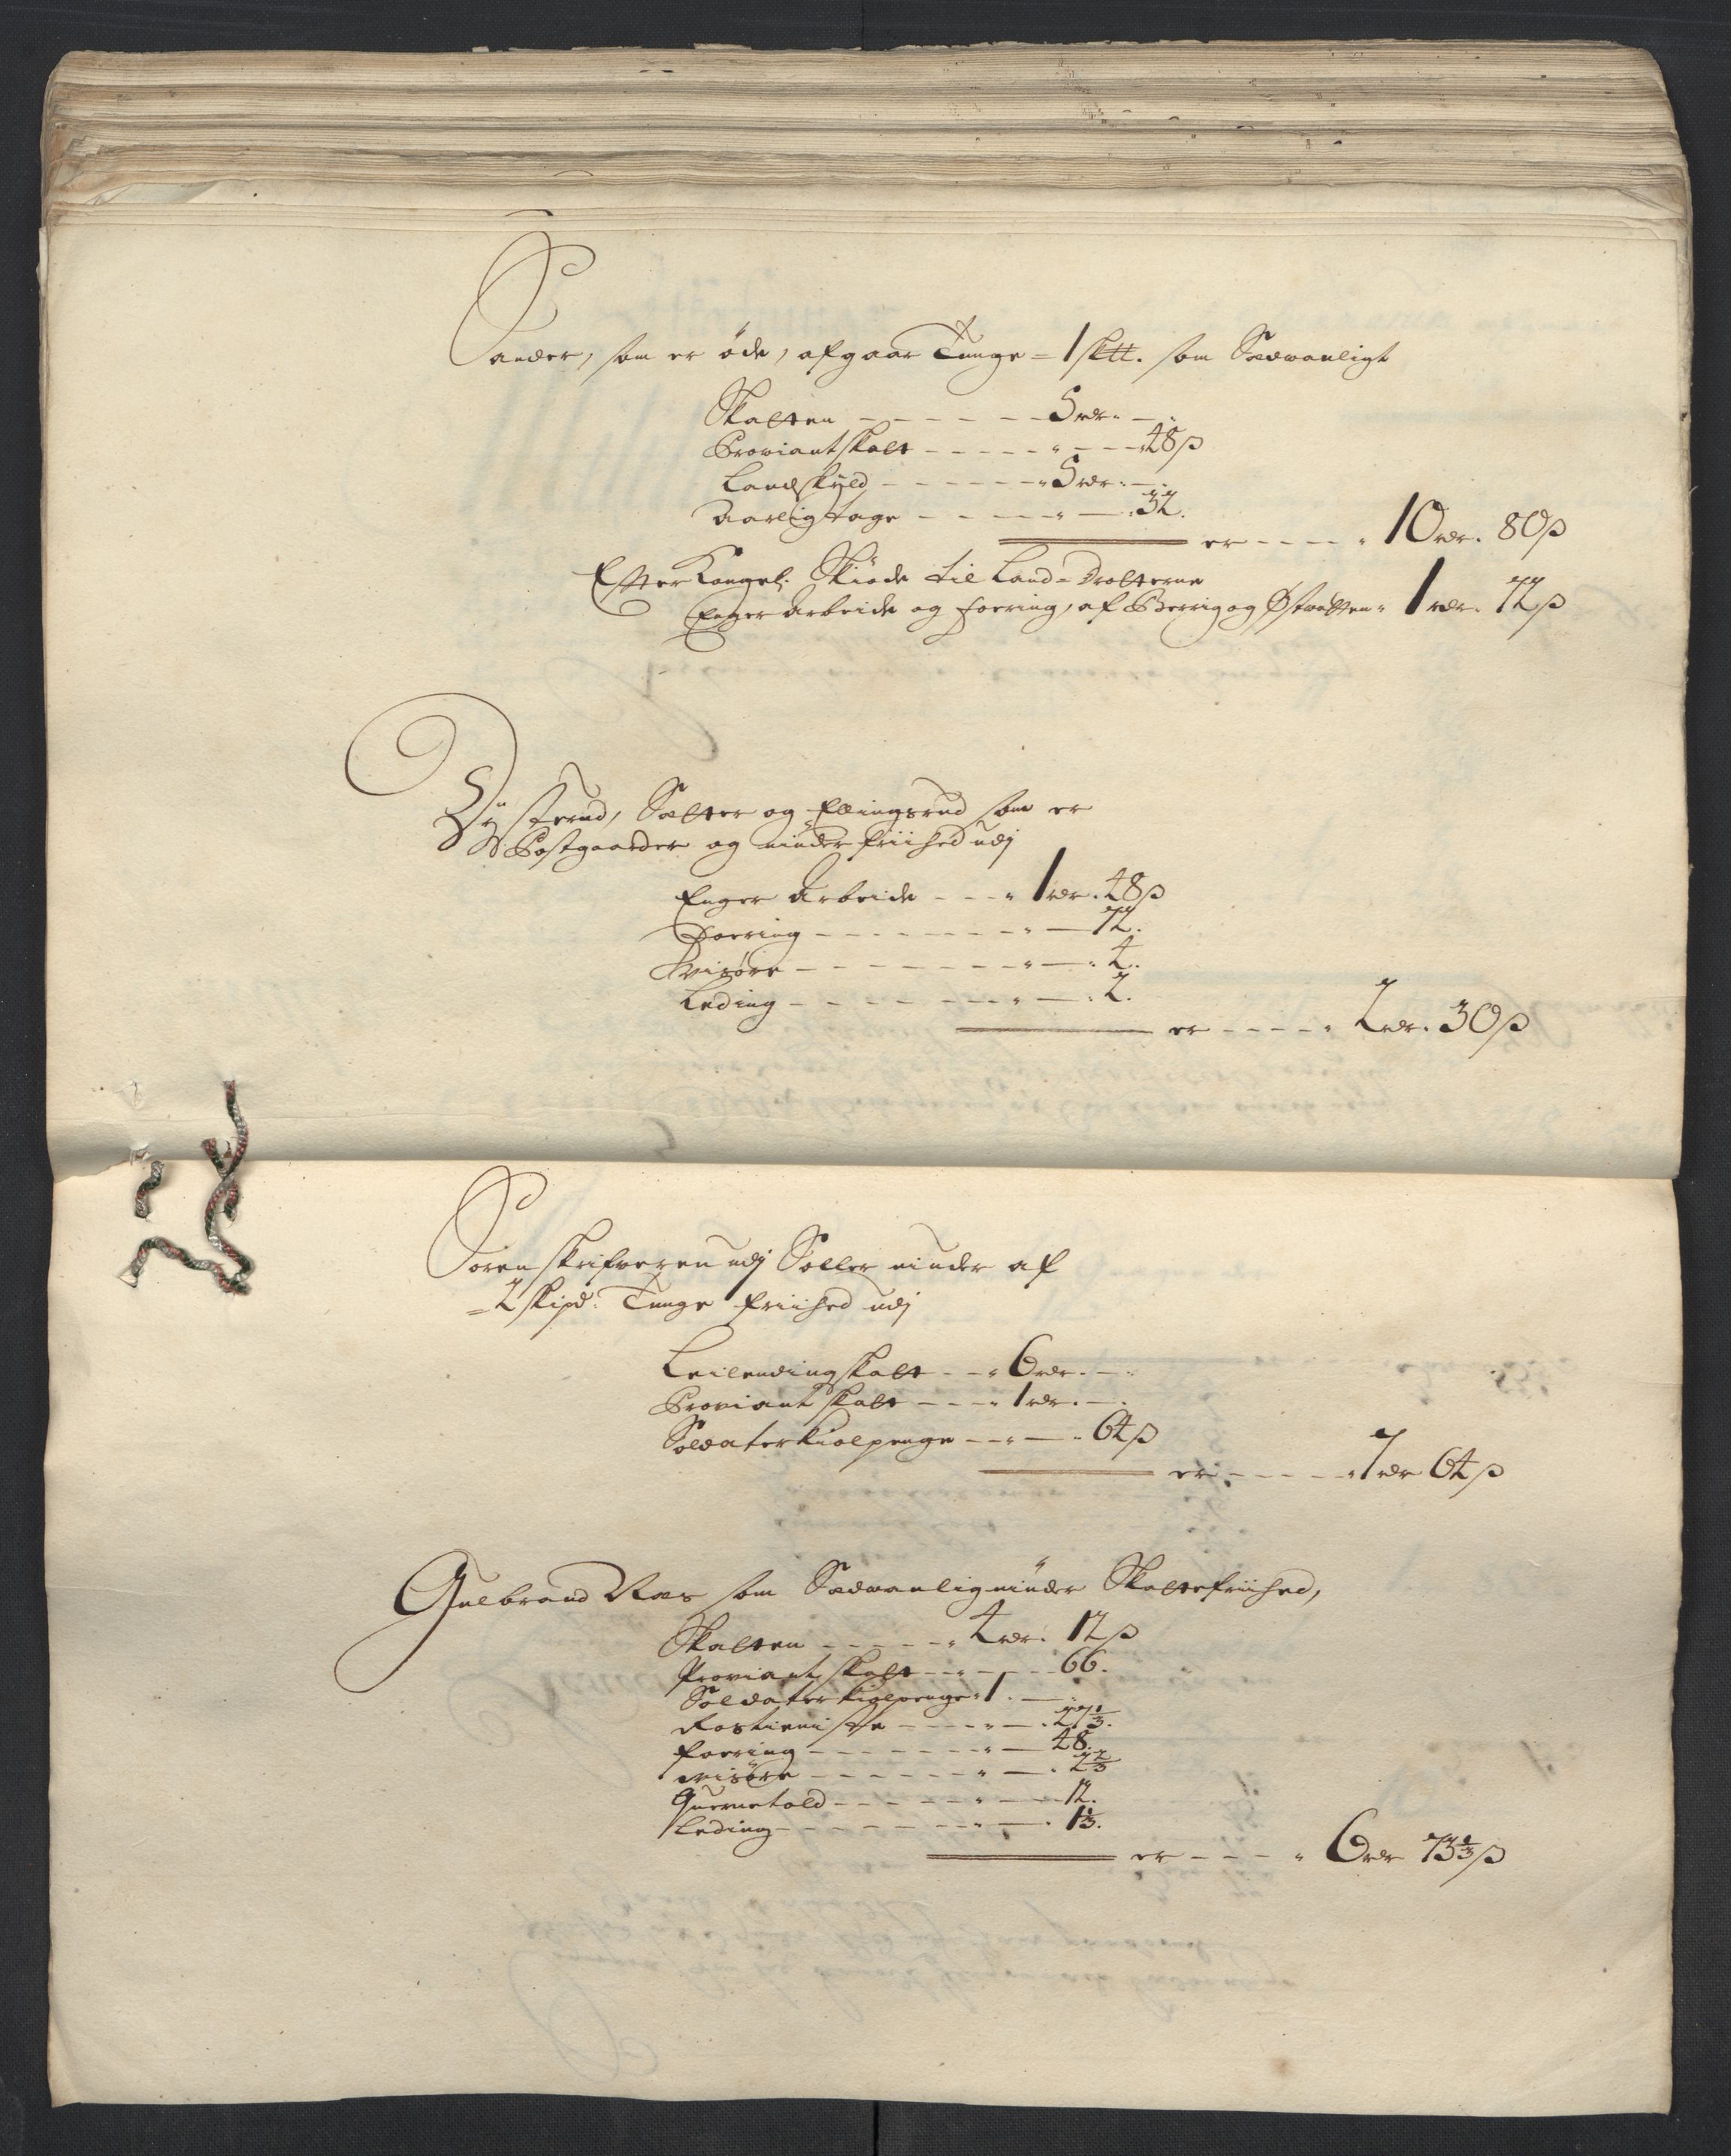 Sander, som er öde, afgaar Tunge = 1 sktt. som Sædwanligt
Skatten - - - - - - 5 rdr. - .
Proviantskatt - - - - - " - - - 48 ß
Landskyld - - - - - - " 5 rdr. - .
Aarlig tage - - - - - " - . 32.
er - - - - " 10 rdr. 80 ß
Efter Kongel. Skiöde til Land-Drosterne
Enger Arbeide og foering, af Berrig og Østraatten " 1 rdr. 72 ß
Dÿsterud, Sætter og Ellingsrud som er
Postgaarder og niuder friihed udj
Enger Arbeide - - - " 1 rdr. 48 ß
Foering - - - - - - - - " - 72.
Wisöre - - - - - - - - " - " 4.
Leding - - - - - - - - " - " 2.
er - - - - " 2 rdr. 30 ß
Sorenskrifveren udj Soller niuder af
= 2 skipd: Tunge friihed udj
Leilendingskatt - - " 6 rdr. - .
Proviantskatt - - - " 1 rdr. - .
Soldaterkiolpenge - - " - " 64 ß
er - - - - " 7 rdr 64 ß
Gulbrand Næs som Sædwanlig niuder Skattefriihed,
Skatten - - - - - " 4 rdr. 12 ß
Proviantskatt - - " - - - 66.
Soldaterkiolpenge " 1 . - .
Rostieniste - - - - " - . 27 1/3.
foering - - - - - - - " - 48.
wisöre - - - - - - " - . 2 2/3
Quernetold - - - - - - " - - 12.
Leding - - - - - - - - " - . 1 1/3.
er - - - " 6 rdr 73 1/3 ß